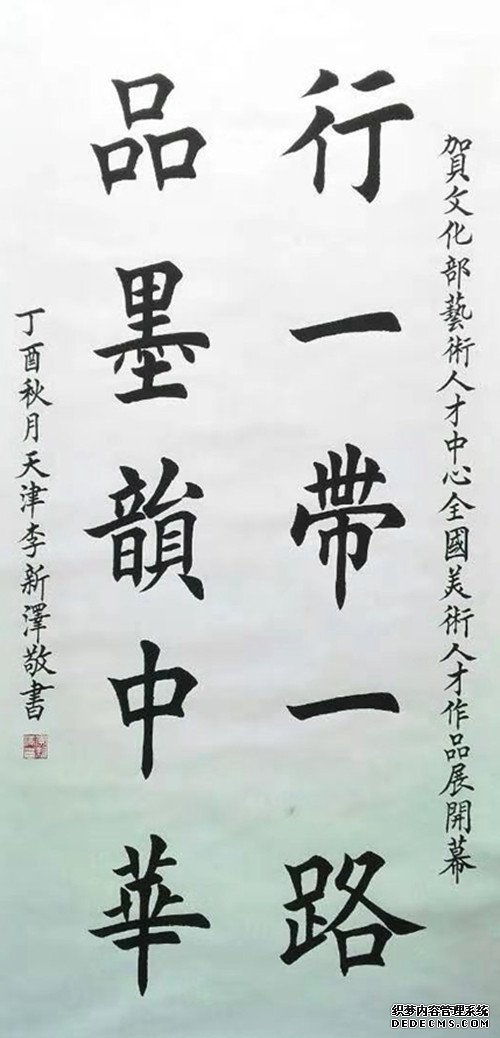 賀文化部藝術人才中心全國美術人才作品展開幕
行一帶一路
品墨韻中華
丁酉秋月天津李新澤敬書
织梦内容管理系统
DEDECMS.COM